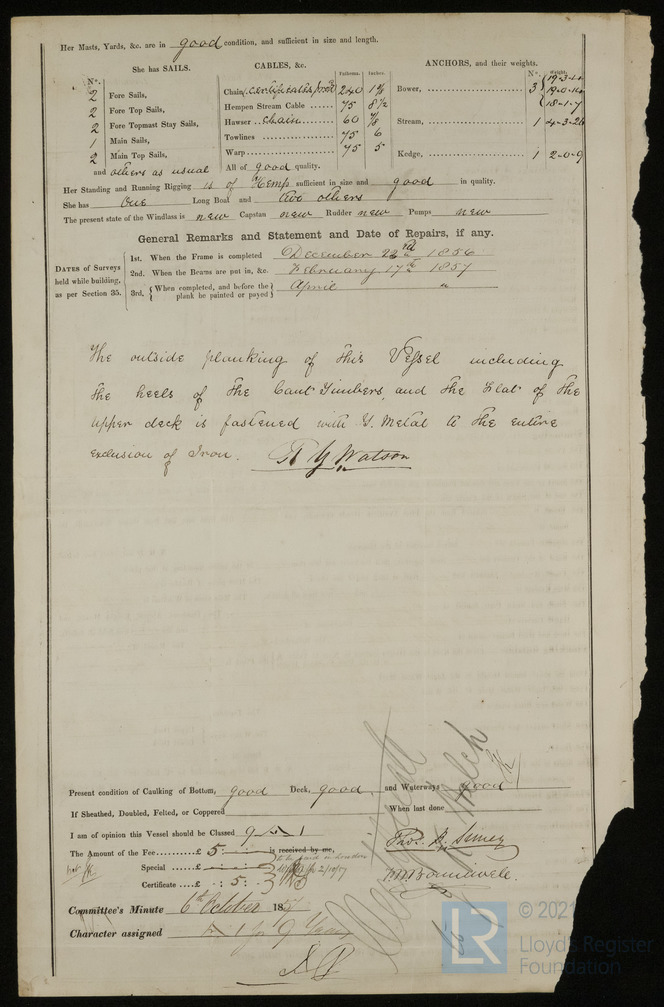 Her Masts, Yards, &c. are in good condition, and sufficient in size and length.
She has SAILS.
CABLES, &c.
ANCHORS, and their weights.
N°.
Fathoms. Inches.
N°. Weight.
2 Fore Sails,
2 Fore Top Sails,
2 Fore Topmast Stay Sails,
1 Main Sails,
2 Main Top Sails,
and others as usual
Chain, certificates 240
Hempen Stream Cable ...... 75 8½
Hawser .. Chain 60 ⅞
Towlines 75 6
Warp 75 5
All of good quality.
Bower, 3 19-3-14
19-0-14
18-1-7
Stream, 1 4-3-26
Kedge, 1 2-0-9
Her Standing and Running Rigging is of Hemp sufficient in size and good in quality.
She has One Long Boat and two others
The present state of the Windlass is new Capstan new Rudder new Pumps new
General Remarks and Statement and Date of Repairs, if any.
DATES of Surveys held while building, as per Section 35.
1st. When the Frame is completed December 1856
2nd. When the Beams are put in, &c. February 17th 1857
3rd. { When completed, and before the plank be painted or payed } April "
The outside planking of this Vessel including
the heels of the Cant Timbers, and the Flat of the
upper deck is fastened with Y. Metal to the entire
exclusion of Iron. G Y Watson
Present condition of Caulking of Bottom, good Deck, good, and Waterways good
If Sheathed, Doubled, Felted, or Coppered When last done
I am of opinion this Vessel should be Classed 9 A 1
The Amount of the Fee .......... £ 5 : is received by me,
to be paid in London
Special ...... £
Certificate .... £ - : 5 :
Committee's Minute 6th October 1857
Character assigned A 1 for 9 Years
© 2021
LR
Lloyd's Register
Foundation